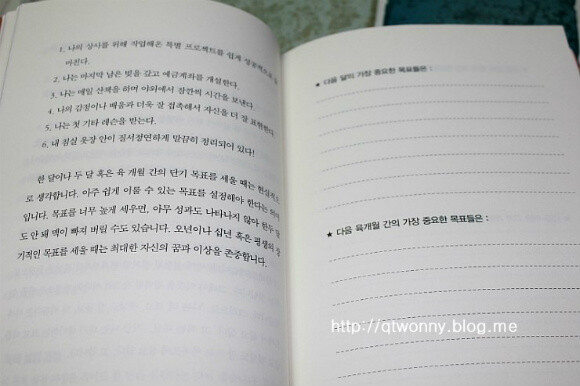 1. 나의 상사를 위해 작업해온 특별 프로젝트를 쉽게 성공적으로
마친다.
2. 나는 마지막 남은 빚을 갚고 예금계좌를 개설한다.
3. 나는 매일 산책을 하며 야외에서 잠깐씩 시간을 보낸다.
4. 나의 감정이나 배움과 더욱 잘 접촉해서 자신을 더 잘 표현한다.
5. 나는 첫 기타 레슨을 받는다.
6. 내 침실 옷장 안이 질서정연하게 말끔히 정리되어 있다!
한 달이나 두 달 혹은 육 개월 간의 단기 목표를 세울 때는 현실적으
로 생각합니다. 아주 쉽게 이룰 수 있는 목표를 설정해야 한다는
입니다. 목표를 너무 높게 세우면, 아무 성과도 나타나지 않아 한두 달
도 안 돼 맥이 빠져 버릴 수도 있습니다. 오년이나 십년 혹은 평생의 장
기적인 목표를 세울 때는 최대한 자신의 꿈과 이상을 존중합니다.
★ 다음 달의 가장 중요한 목표들은 :
★ 다음 육개월 간의 가장 중요한 목표들은 :
http://qtwonny.blog.me